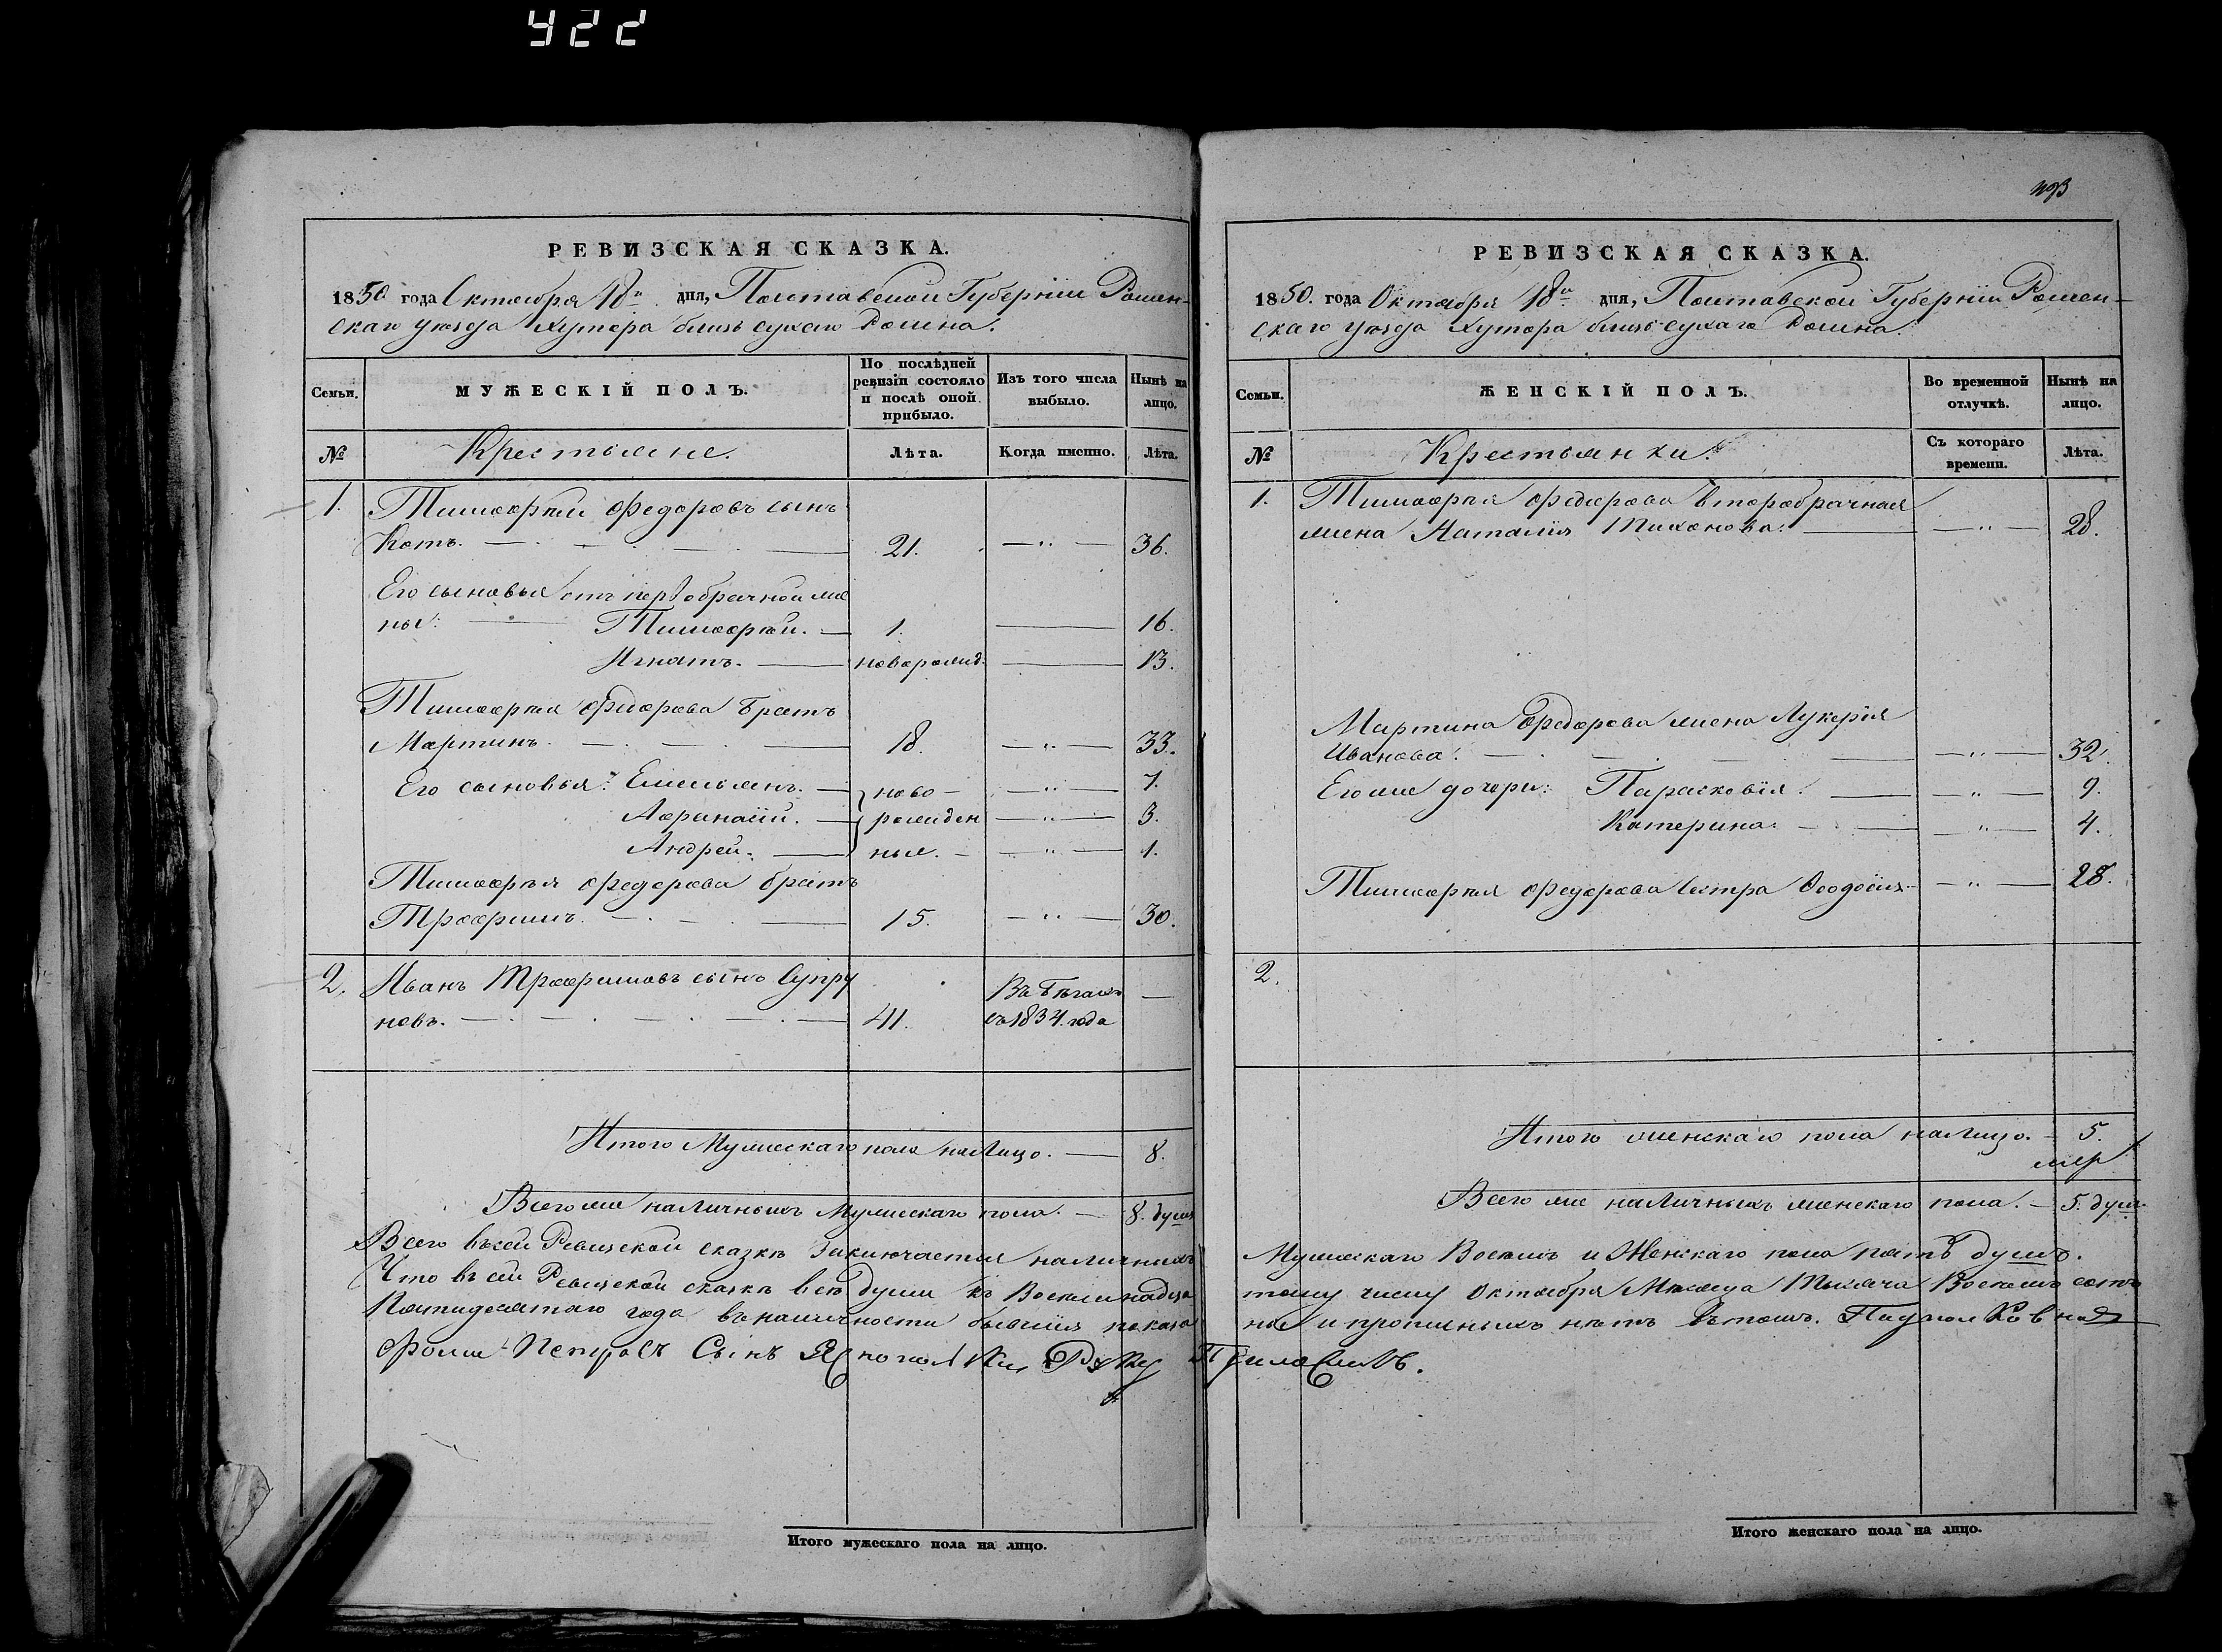 422
РЕВИЗСКАЯ СКАЗКА.
1850 года Октября 18го дня, Полтавской Губерніи Ромен-
скаго уезда Хутора близь сухаго Ромна.
Семьи.
МУЖЕСКІЙ ПОЛЪ.
По послѣдней ревизіи состояло и послѣ оной прибыло.
Изъ того числа выбыло.
Нынѣ на лицо.
№
Крестьяне.
Лѣта.
Когда именно.
Лѣта.
1. Тимофѣй Федоровъ сынъ
Котъ. 21. 36.
Его сыновья отъ первобрачной же
ны: Тимофѣй. 1. 16.
Игнатъ. новорожд. 13.
Тимофѣя Федорова братъ
Мартинъ. 18. 33.
Его сыновья: Емельянъ. ново- 7.
Афанасій. рожден 3.
Андрей. ные. 1.
Тимофѣя Федорова братъ
Трофимъ. 15. 30.
2. Иванъ Трофимовъ сынъ Супру Въ бѣгахъ —
новъ. 41. съ 1834. года
Итого Мужескаго пола на Лицо. 8.
Всего же наличныхъ Мужескаго пола. 8. душъ
Всего въ сей Ревизской сказкѣ Заключается наличныхъ
Что въ сей Ревизской сказкѣ всѣ души къ Восемнадца
Пятидесятаго года въ наличности бывшія показа
Фома Петровъ Сынъ Руку
Итого мужескаго пола на лицо.
493
РЕВИЗСКАЯ СКАЗКА.
1850. года Октября 18го дня, Полтавской Губерніи Ромен-
скаго уезда Хутора близь сухаго Ромна.
Семьи.
ЖЕНСКІЙ ПОЛЪ.
Во временной отлучкѣ.
Нынѣ на лицо.
№
Крестьянки.
Съ котораго времени.
Лѣта.
1. Тимофѣя Федорова второбрачная
жена Наталія Тихонова. 28.
Мартина Федорова жена Лукерія
Иванова. 32.
Его же дочери: Парасковія. 9.
Катерина. 4.
Тимофѣя Федорова Сестра Феодосія 28.
2.
Итого женскаго пола на Лицо. 5.
Всего же наличныхъ женскаго пола. 5. душъ
Мужескаго Восемь и Женскаго пола пять душъ.
тому числу Октября Мѣсяца Тысяча Восемь сотъ
ны и прописныхъ нѣтъ Въ томъ.
Приложилъ.
Итого женскаго пола на лицо.